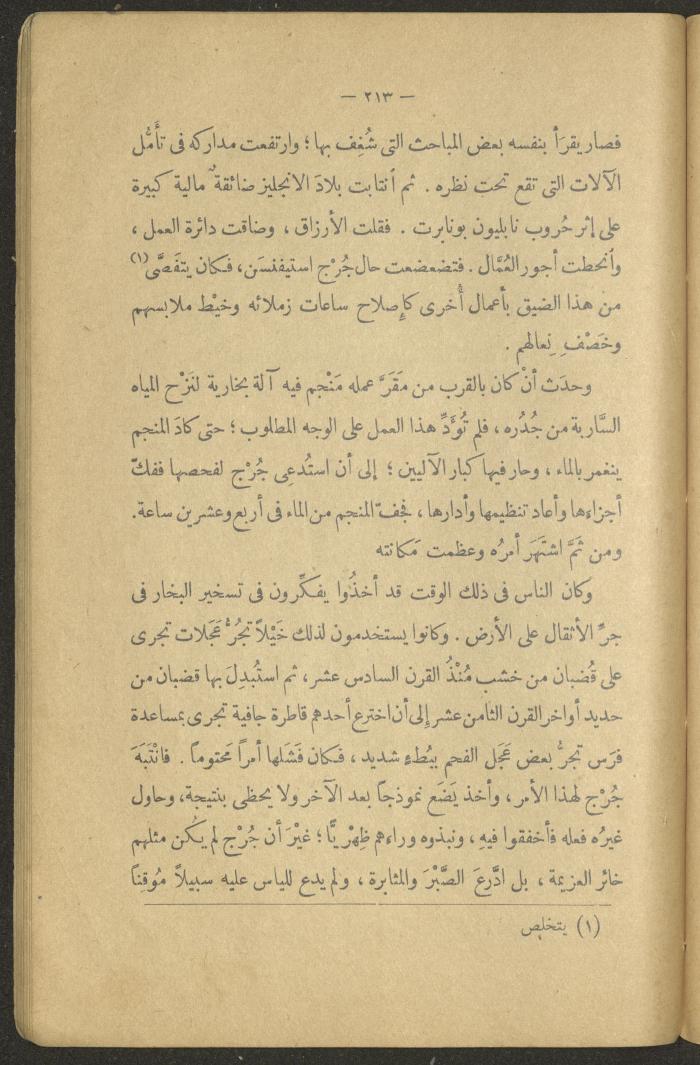 — ٢١٣ —
فصار يقرَأ بنفسه بعض المباحث التى شُغِف بها ؛ وارتفعت مداركه فى تأَمُّل
الآلات التى تقع تحت نظره . ثم اُنتابت بلادَ الانجليز ضائقةٌ مالية كبيرة
على إثر حُروب نابليون بونابرت . فقلت الأرزاق ، وضاقت دائرة العمل ،
واُنحطت أجور العُمَّال . فتضعضعت حال جُرْج استيفنسَن، فكان يتفَصَّى(١)
من هذا الضيق بأعمال أُخرى كإصلاح ساعات زملائه وخيْط ملابسهم
وخَصْفِ نِعالهم .
وحدَث أنْ كان بالقرب من مَقَرّ عمله مَنْجم فيه آلة بخارية لنَزْح المياه
السَّاربة من جُدُره ، فلم تُؤَدِّ هذا العمل على الوجه المطلوب ؛ حتى كادَ المنجم
ينغمر بالماء ، وحار فيها كبار الآليين ؛ إلى أن استُدعِى جُرْج لفحصها ففكّ
أجزاءها وأعاد تنظيمها وأدارها ، فجفّ المنجم من الماء فى أربع وعشرين ساعة.
ومن ثَمَّ اشتَهَر أمرُه وعظمت مَكانته
وكان الناس فى ذلك الوقت قد أخذُوا يفكِّرون فى تسخير البخار فى
جرِّ الأثقال على الأرض . وكانوا يستخدمون لذلك خَيْلاً تجُرُّ عَجَلات تجرى
على قُضبان من خشب مُنْذُ القرن السادس عشر، ثم استُبدِلَ بها قضبان من
حديد أواخر القرن الثامن عشر إلى أن اخترع أحدهم قاطرة جافية تجرى بمساعدة
فرَس تجرُّ بعض عَجَل الفحم ببُطءٍ شديد ، فكان فَشَلها أمراً مَحتوماً . فانْتَبَهَ
جُرْج لهذا الأمر ، وأخذ يَضَع نموذجاً بعد الآخر ولا يحظى بنتيجة، وحاول
غيرُه فعله فأخفقوا فيهِ ، ونبذوه وراءهم ظِهْريًّا ؛ غيْرَ أن جُرْج لم يكُن مثلهم
خائر العزيمة ، بل ادَّرعَ الصَّبْرَ والمثابرة ، ولم يدع للياس عليه سبيلاً مُوقِناً
(١) يتخلص